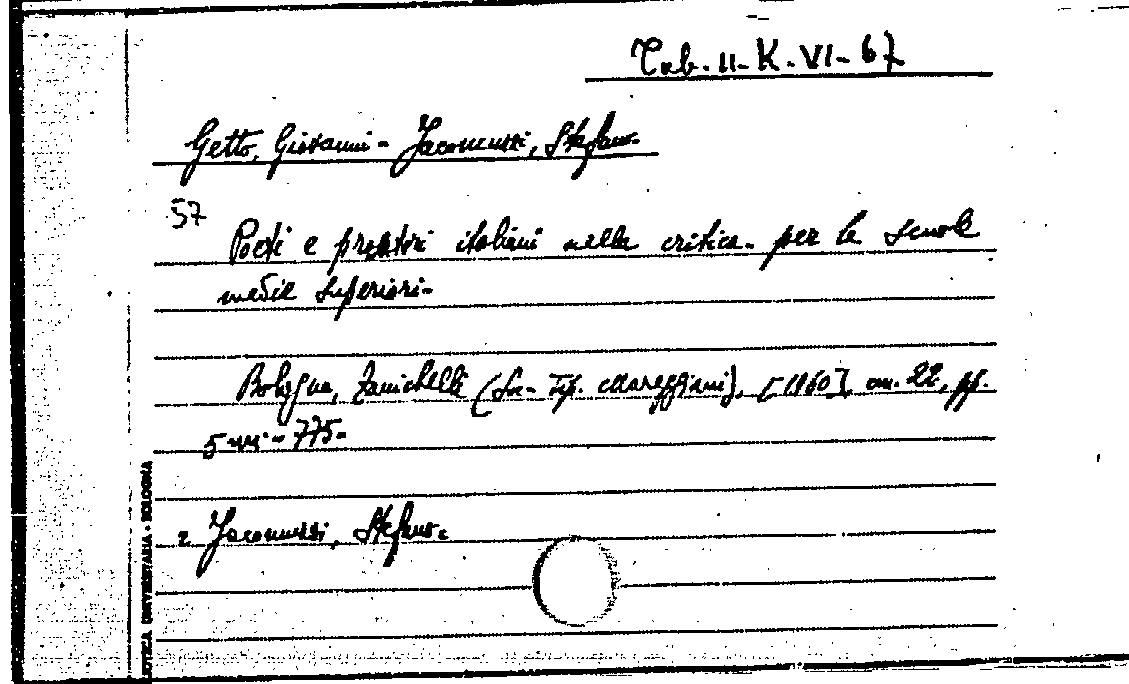 Tab. II- K. VI- 67
Getto, Giovanni - Jacomuzzi, Stefano.
57
Poeti e prosatori italiani nella critica. per le scuole
medie superiori.
Bologna, Zanichelli (Soc. Tip. Mareggiani), [1960], cm. 22, pp.
775.
Jacomuzzi, Stefano.
UNIVERSITARIA - BOLOGNA